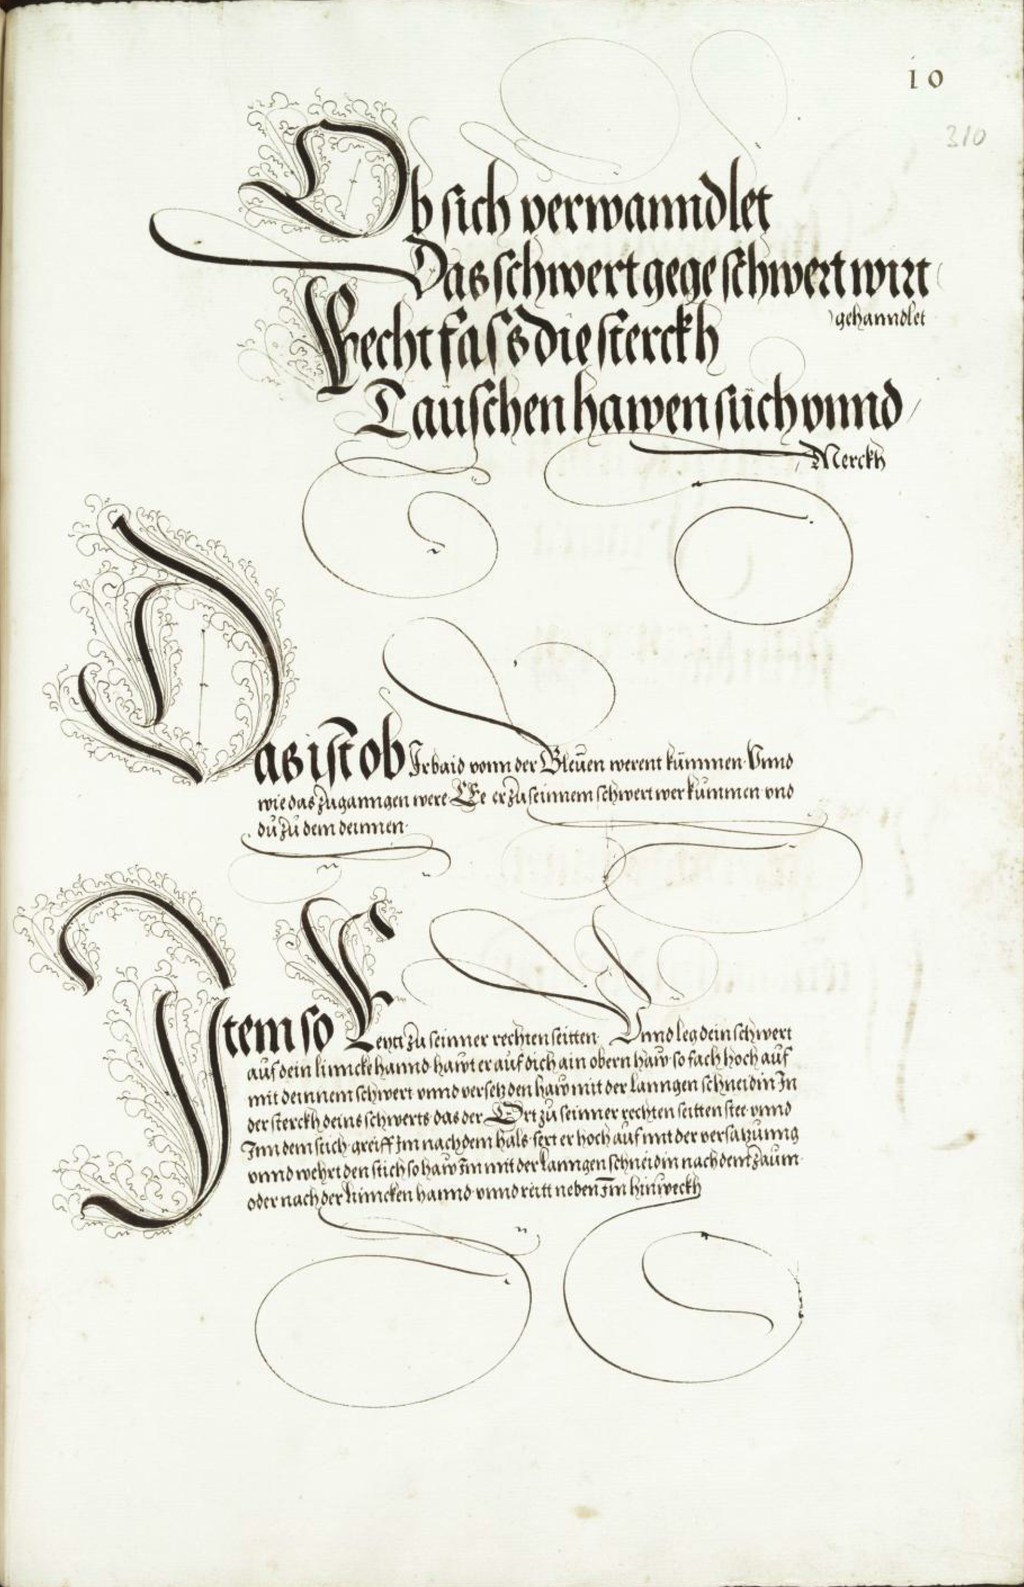 10
310
Ob sich verwanndlet
Das schwert gege schwert wirt
gehanndlet
Recht fass die sterckh
Täuschen hawen süch vnnd
Merckh
Das ist ob Ir baid vonn der Gleuen werent kümmen. Vnnd
wie das zuganngen were. Ee er zu seinnem schwert wer kummen vnd
dü zu dem deinnen.
Item so Reytt zu seinner rechten seitten. Vnnd leg dein schwert
auf dein linncke hannd. hawt er auf dich ain obern haw so fach hoch auf
mit deinnem schwert vnnd versetz den haw mit der lanngen schneidin In
der sterckh deins schwerts. das der Ort zu seinner rechten seitten stee. vnnd
Inn dem stich greiff Im nach dem hals. fert er hoch auf mit der versatzunng
vnnd wehrt den stich so haw Im mit der lanngen schneidin nach dem zaum.
oder nach der linncken hannd. vnnd reitt neben Im hinweckh